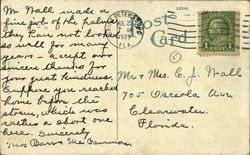 Mr Wall made a
fine job of the palms
they have not looked
so well for many
years - accept our
sincere thanks for
your great kindness.
Suppose you reached
home before the
storm, which was
rather a short one
here. Sincerely
Mrs
Post
Card
FLA.
1
Mr & Mrs. E. J. Wall
705 Osceola Ave.
Clearwater,
Florida.